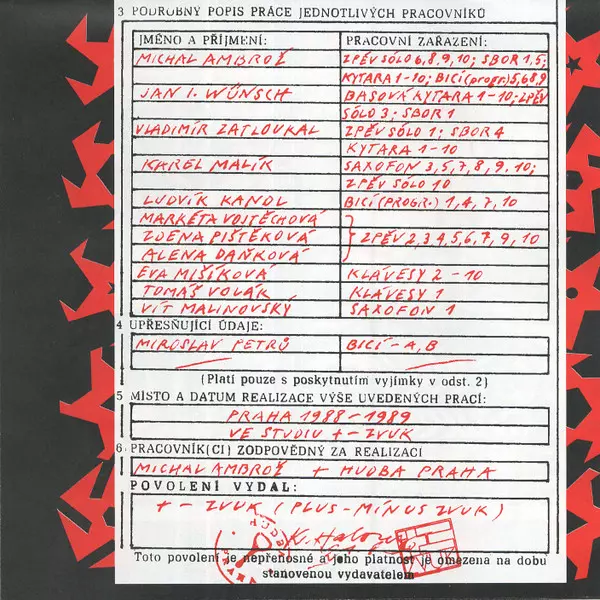 3 PODROBNÝ POPIS PRÁCE JEDNOTLIVÝCH PRACOVNÍKŮ
JMÉNO A PŘÍJMENÍ: PRACOVNÍ ZAŘAZENÍ:
MICHAL AMBROŽ ZPĚV SÓLO 6,8,9,10; SBOR 1,5;
KYTARA 1-10; BICÍ (progr.) 5,6,8,9
JAN I. WÜNSCH BASOVÁ KYTARA 1-10; ZPĚV
SÓLO 3; SBOR 1
VLADIMÍR ZATLOUKAL ZPĚV SÓLO 1; SBOR 4
KYTARA 1-10
KAREL MALÍK SAXOFON 3,5,7,8,9,10;
ZPĚV SÓLO 10
LUDVÍK KANDL BICÍ (PROGR.) 1,4,7,10
MARKÉTA VOJTĚCHOVÁ
ZDENA PIŠTĚKOVÁ ZPĚV 2,3,4,5,6,7,9,10
ALENA DAŇKOVÁ
EVA MIŠÍKOVÁ KLÁVESY 2-10
TOMÁŠ VOLÁK KLÁVESY 1
VÍT MALINOVSKÝ SAXOFON 1
4 UPŘESŇUJÍCÍ ÚDAJE:
MIROSLAV PETRŮ BICÍ - A, B
(Platí pouze s poskytnutím vyjímky v odst. 2)
5 MÍSTO A DATUM REALIZACE VÝŠE UVEDENÝCH PRACÍ:
PRAHA 1988-1989
VE STUDIU +-ZVUK
6 PRACOVNÍK(CI) ZODPOVĚDNÝ ZA REALIZACI
MICHAL AMBROŽ + HUDBA PRAHA
POVOLENÍ VYDAL:
+- ZVUK (PLUS-MÍNUS ZVUK)
Toto povolení je nepřenosné a jeho platnost je omezena na dobu
stanovenou vydavatelem